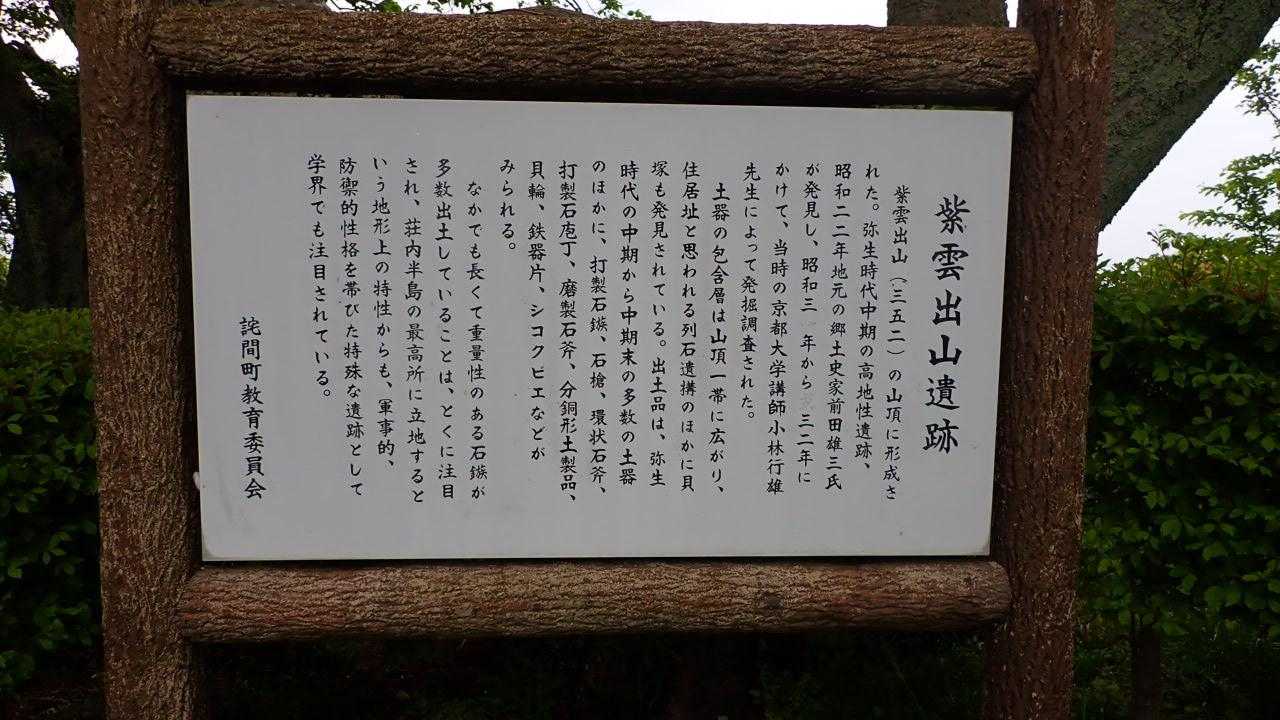 紫雲出山遺跡
紫雲出山(三五二)の山頂に形成さ
れた。弥生時代中期の高地性遺跡、
昭和二二年地元の郷土史家前田雄三氏
が発見し、昭和三 年から 三二年に
かけて、当時の京都大学講師小林行雄
先生によって発掘調査された。
土器の包含層は山頂一帯に広がり、
住居址と思われる列石遺搆のほかに貝
塚も発見されている。出土品は、弥生
時代の中期から中期末の多数の土器
のほかに、打製石鏃、石槍、環状石斧、
打製石庖丁、磨製石斧、分銅形土製品、
貝輪、鉄器片、シコクビエなどが
みられる。
なかでも長くて重量性のある石鏃が
多数出土していることは、とくに注目
され、荘内半島の最高所に立地すると
いう地形上の特性からも、軍事的、
防禦的性格を帯びた特殊な遺跡として
学界でも注目されている。
詫間町教育委員会